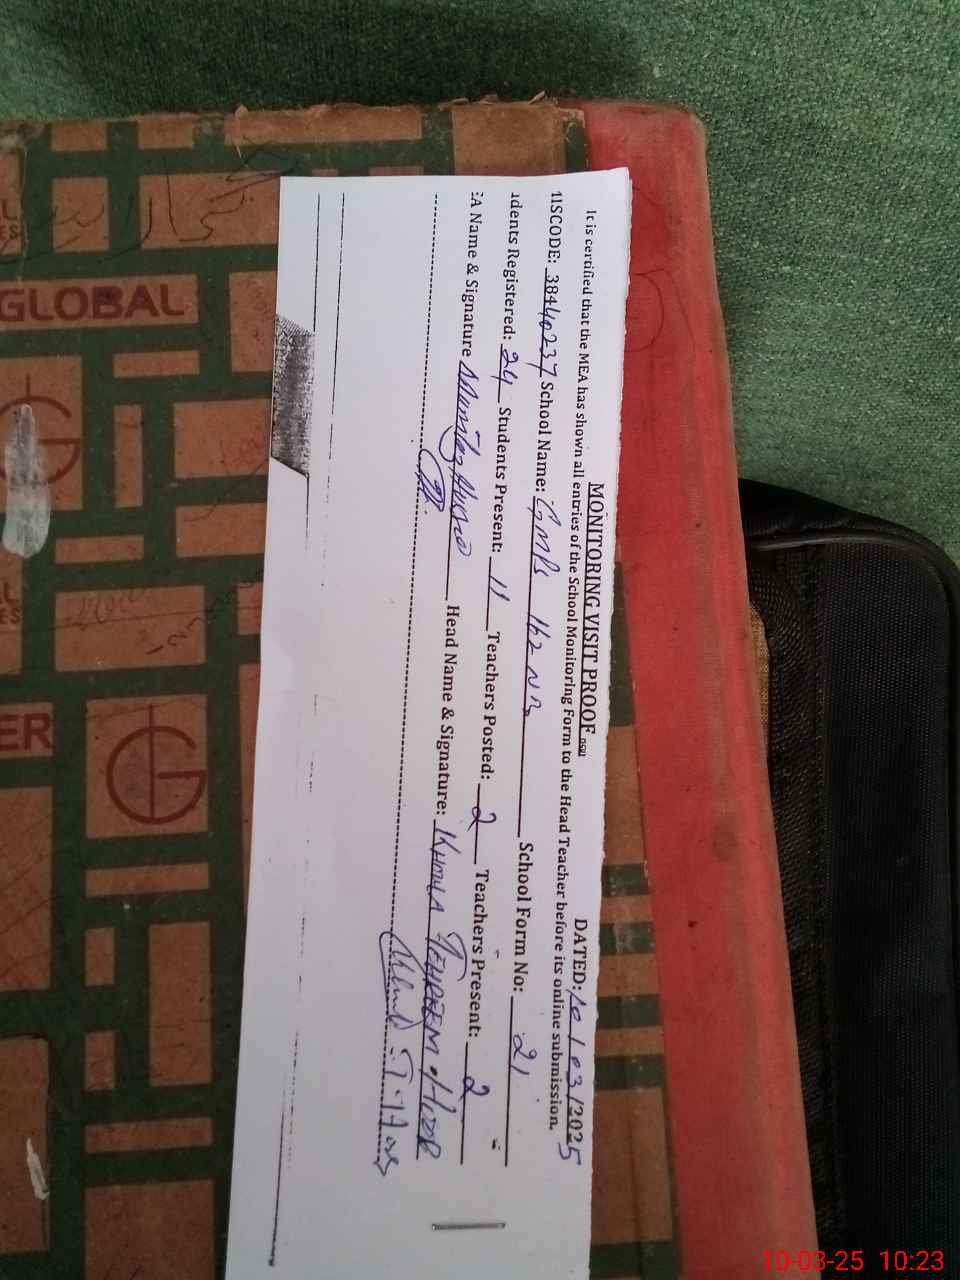 MONITORING VISIT PROOF DATED: 10/03/2025
It is certified that the MEA has shown all entries of the School Monitoring Form to the Head Teacher before its online submission.
ISCODE: 38440237 School Name: GMPS 162 NB School Form No: 21
dents Registered: 24 Students Present: 11 Teachers Posted: 2 Teachers Present: 2
A Name & Signature Head Name & Signature:
GLOBAL
ER
10-03-25 10:23